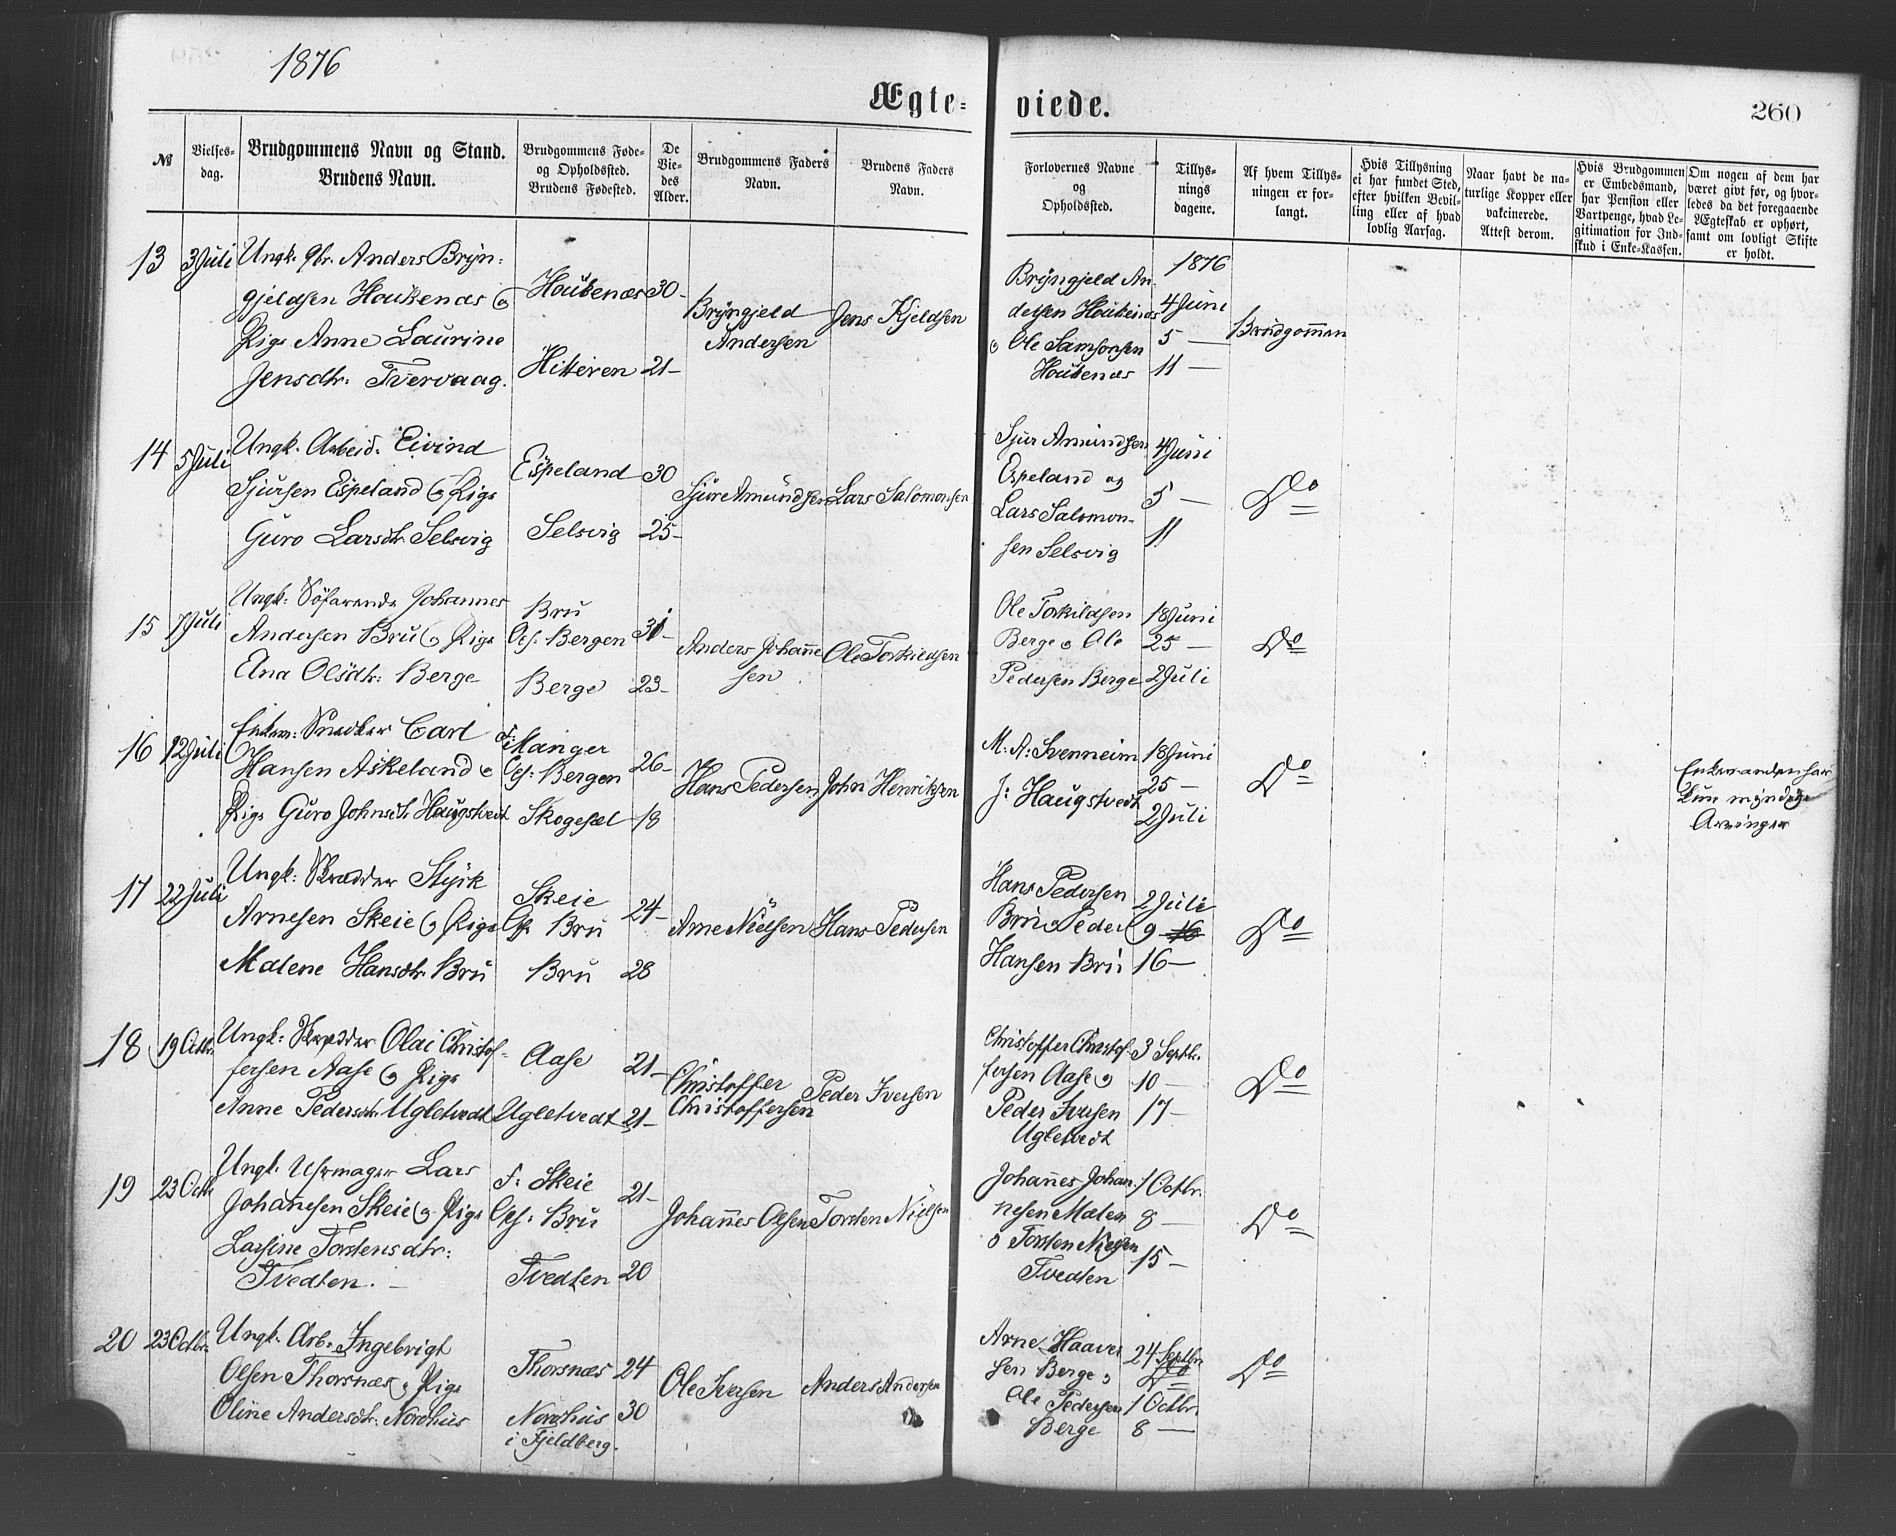 1876
Ægte-
viede.
260
№
Vielses-
dag.
Brudgommens Navn og Stand.
Brudens Navn.
Brudgommens Føde-
og Opholdssted.
Brudens Fødested.
De
Vie-
des
Alder.
Brudgommens Faders
Navn.
Brudens Faders
Navn.
Forlovernes Navne
og
Opholdssted.
Tillys-
nings
dagene.
Af hvem Tillys-
ningen er for-
langt.
Hvis Tillysning
ei har fundet Sted,
efter hvilken Bevil-
ling eller af hvad
lovlig Aarsag.
Naar havt de na-
turlige Kopper eller
vakcinerede.
Attest derom.
Hvis Brudgommen
er Embedsmand,
har Pension eller
Vartpenge, hvad Le-
gitimation for Ind-
skud i Enke-Kassen.
Om nogen af dem har
været givt før, og hvor-
ledes da det foregaaende
Ægteskab er ophørt,
samt om lovligt Skifte
er holdt.
13
3 Juli
Ungk. Gbr. Anders Bryn-
gjeldsen Haukenæs og
Pige Anne Laurine
Jensdtr: Tvervaag.
Haukenæs
Hitteren
30-
21-
Bryngjeld
Andersen
Jens Kjeldsen
Bryngjeld An
dersen Haukenæs
o Ole Samsonsen
Haukenæs
1876
4 Juni
5 —
11 —
Brudgommen
14
5 Juli
Ungk. Arbeid. Eivind
Sjursen Espeland og Pige
Guro Larsdtr Selsvig
Espeland
Selsvig
30
25-
Sjur Amundsen
Lars Salomonsen
Sjur Amundsen
Espeland og
Lars Salomon-
sen Selsvig
4 Juni
5 —
11
Do
15
7 Juli
Ungk: Söfarende Johannes
Andersen Bru og Pige
Ana Olsdtr: Berge
Bru
Opf: Bergen
Berge
31-
23-
Anders Johanne
sen
Ole Torkildsen
Ole Torkildsen
Berge o Ole
Pedersen Berge
18 Juni
25 —
2 Juli
Do
16
12 Juli
Enkem: Snedker Carl
Hansen Askeland o
Pige Guro Johnsdtr Haugstvedt
f: Manger
Opf: Bergen
Skogesæl
26-
18
Hans Pedersen
John Henriksen
M. A. Svenneim
J: Haugstvedt
18 Juni
25 —
2 Juli
Do
Enkemanden har
kun myndige
Arvinger
17
22 Juli
Ungk: Skrædder Styrk
Arnesen Skeie og Pige
Malene Hansdtr Bru
Skeie
Opf. Bru
Bru
24-
28
Arne Nielsen
Hans Pedersen
Hans Pedersen
Bru o Peder
Hansen Bru
2 Juli
9 16
16 —
Do
18
19 Octbr.
Ungk: Skrædder Olai Christof-
fersen Aase og Pige
Anne Pedersdtr. Ugletvedt
Aase
Ugletvedt
21-
21-
Christoffer
Christoffersen
Peder Iversen
Christoffer Christof-
fersen Aase og
Peder Iversen
Ugletvedt
3 Septbr.
10 —
17 —
Do
19
23 Octbr
Ungk. Uhrmager Lars
Johanesen Skeie og Pige
Larsine Torstensdtr:
Tvedten. —
f: Skeie
Opf: Bru
Tvedten
21-
20
Johannes Olsen
Torsten Nielsen
Johannes Johan-
nesen Mælen
o Torsten Nielsen
Tvedten
1 Octbr.
8 —
15 —
Do
20
23 Octbr.
Ungk. Arb. Ingebrigt
Olsen Thorsnæs o Pige
Oline Andersdtr. Nordhus
Thorsnæs
Nordhus
i Fjeldberg.
24
30
Ole Iversen
Anders Andersen
Arne Haaver
sen Berge o
Ole Pedersen
Berge
24 Septbr
1 Octbr.
8 —
Do